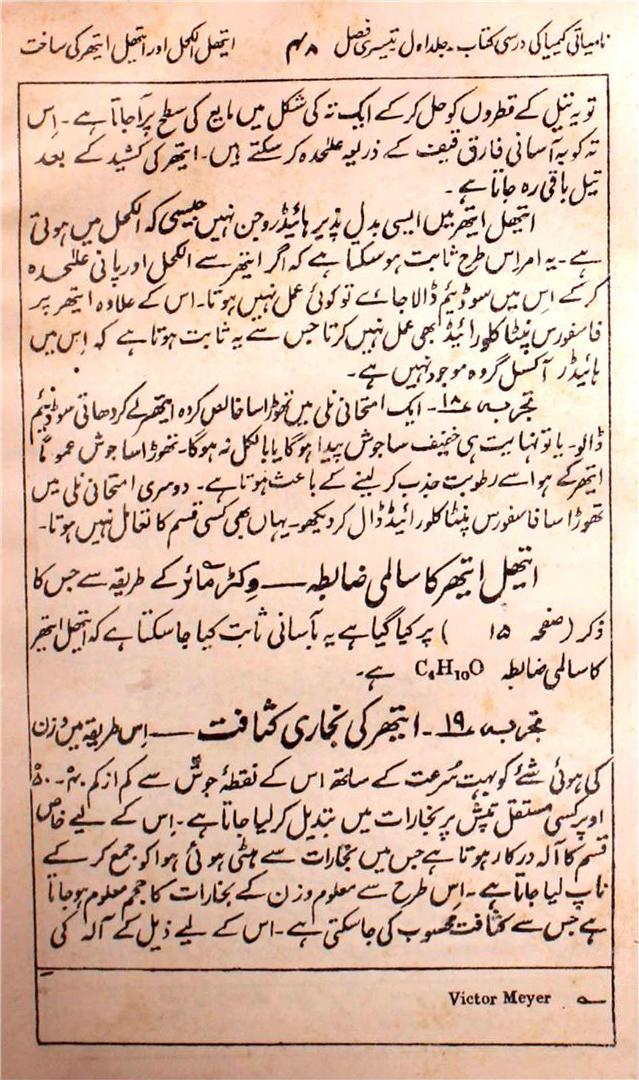 نامیاتی کیمیا کی درسی کتاب۔جلد اول تیسری فصل ۴۸ ایتھل الکحل اور ایتھل ایتھر کی ساخت
تو یہ تیل کے قطروں کو حل کر کے ایک تہ کی شکل میں مایع کی سطح پر آ جاتا ہے۔ اِس
تہ کو بہ آسانی فارق قیف کے ذریعہ علٰحدہ کر سکتے ہیں۔ایتھر کی کشید کے بعد
تیل باقی رہ جاتا ہے۔
ایتھل ایتھر میں ایسی بدل پذیر ہائیڈروجن نہیں جیسی کہ الکحل میں ہوتی
ہے۔یہ امر اس طرح ثابت ہو سکتا ہے کہ اگر ایتھر سے الکحل اور پانی علٰحدہ
کر کے اِس میں سوڈیئم ڈالا جائے تو کوئی عمل نہیں ہوتا۔اس کے علاوہ ایتھر پر
فاسفورس پنٹا کلورائیڈ بھی عمل نہیں کرتا جس سے یہ ثابت ہوتا ہے کہ اِس میں
ہائیڈر آکسل گروہ موجود نہیں ہے۔
تجربہ ۱۸۔ ایک امتحانی نلی میں تھوڑا سا خالص کردہ ایتھر لے کر دھاتی سوڈیئم
ڈالو۔ یا تو نہایت ہی خفیف سا جوش پیدا ہوگا یا بالکل نہ ہوگا۔تھوڑا سا جوش عموماً
ایتھر کے ہوا سے رطوبت جذب کر لینے کے باعث ہوتا ہے۔ دوسری امتحانی نلی میں
تھوڑا سا فاسفورس پنٹا کلورائیڈ ڈال کر دیکھو۔یہاں بھی کسی قسم کا تعامل نہیں ہوتا۔
ایتھل ایتھر کا سالمی ضابطہ ــــ وِکٹر مائر کے طریقہ سے جس کا
ذکر (صفحہ ۱۵ ) پر کیا گیا ہے یہ بآسانی ثابت کیا جا سکتا ہے کہ ایتھل ایتھر
کا سالمی ضابطہ C₄H₁₀O ہے۔
تجربہ ۱۹۔ایتھر کی بخاری کثافت ــــ اِس طریقہ میں وزن
کی ہوئی شئے کو بہت سُرعت کے ساتھ اس کے نقطۂ جوش سے کم از کم ۴۰°۔۵۰°
اوپر کسی مستقل تپش پر بخارات میں تبدیل کر لیا جاتا ہے۔اِس کے لیے خاص
قسم کا آلہ درکار ہوتا ہے جس میں بخارات سے ہٹی ہوئی ہوا کو جمع کر کے
ناپ لیا جاتا ہے۔اِس طرح سے معلوم وزن کے بخارات کا حجم معلوم ہو جاتا
ہے جس سے کثافت محسوب کی جا سکتی ہے۔اس کے لیے ذیل کے آلہ کی
؎ Victor Meyer